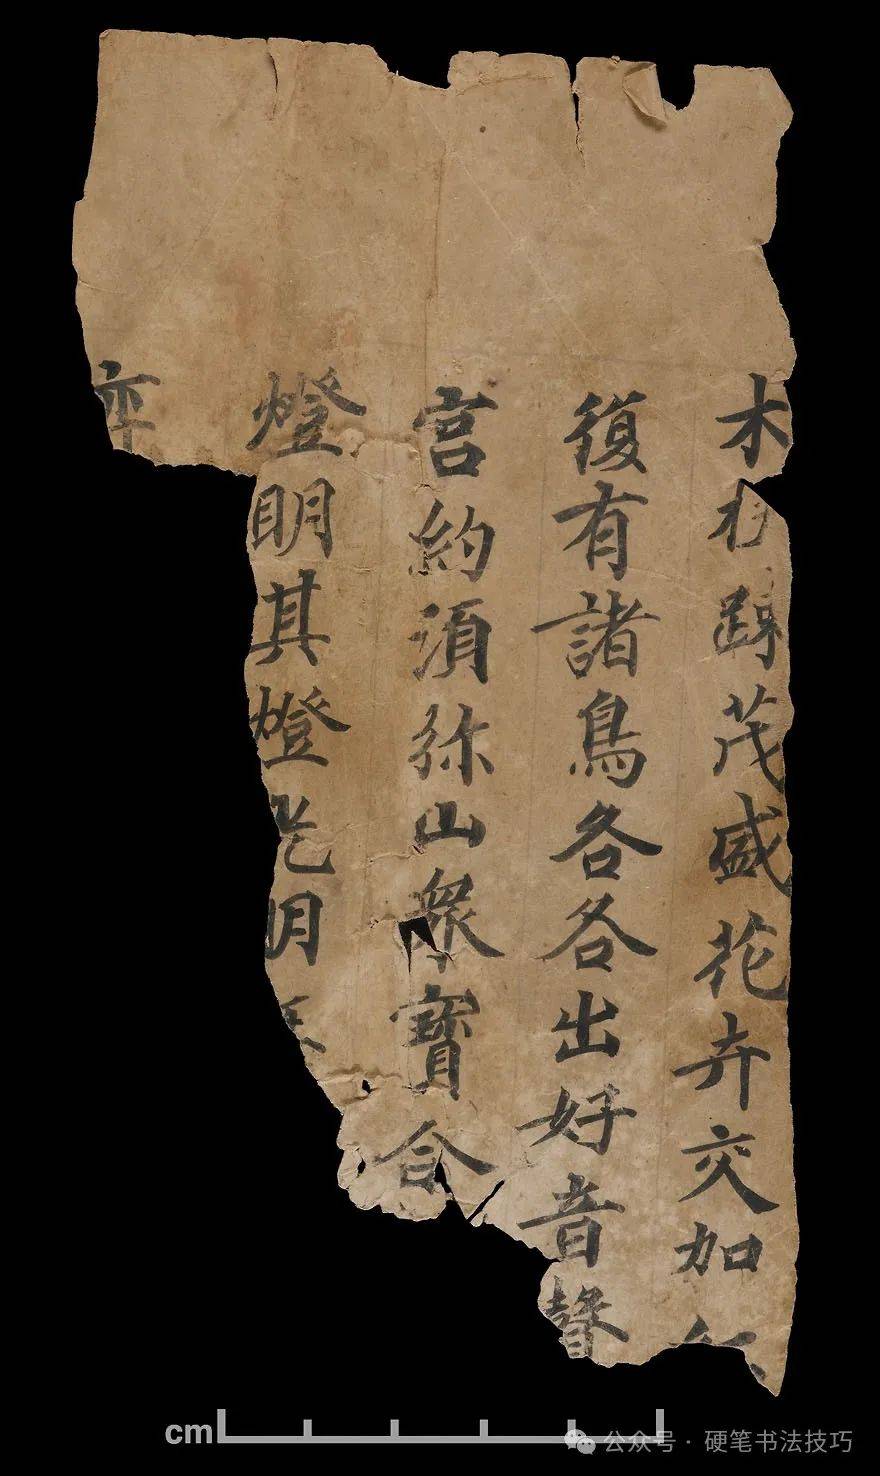 木踈茂盛花卉交加
復有諸鳥各各出好音聲
宫約湏弥山衆寳合
燈明其燈光明
cm
公众号 · 硬笔书法技巧